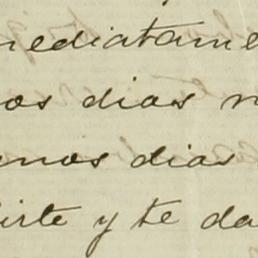 mediatame
os dias n
enos dias
irte y te da